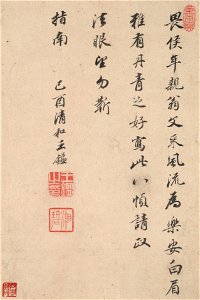 畏侯年親翁文采風流為樂安白眉
雅有丹青之好寫此八幀請政
法眼望勿靳
指南
己酉清和王鑑